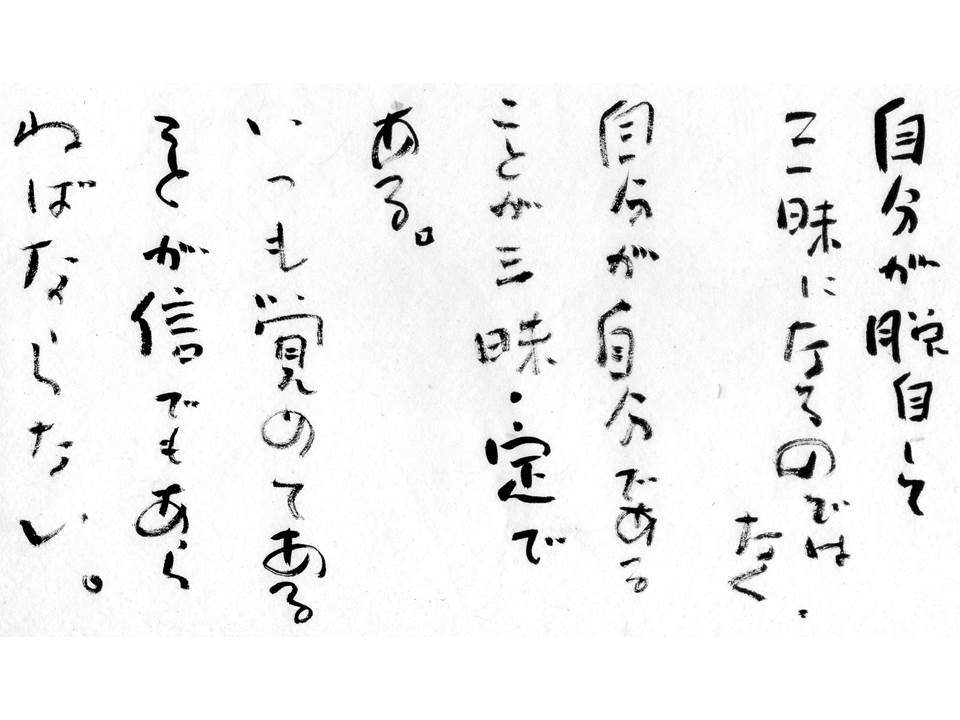 自分が脱自して
三昧になるのでは
なく
自分が自分である
ことが三昧・定で
ある。
いつも覚めてある
ことが信でもあら
ねばならない。